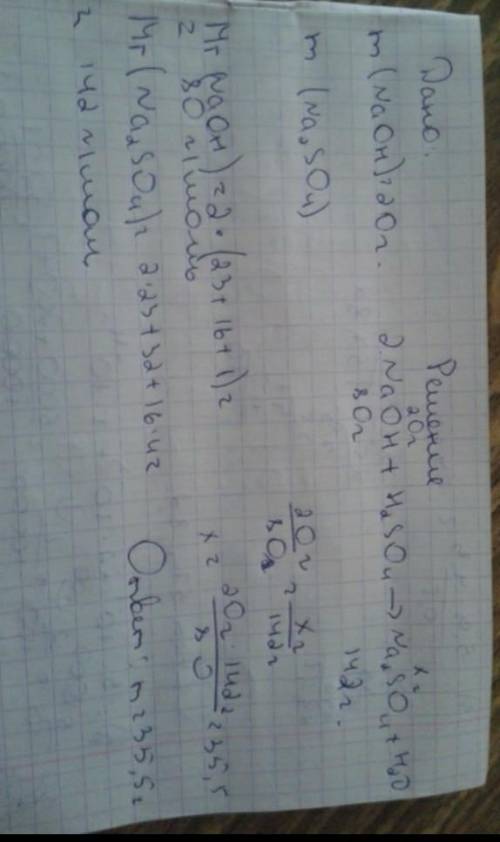 Дано:
m(NaOH)=20г.
m (Na₂SO₄)
Решение
20г xг
2NaOH + H₂SO₄ → Na₂SO₄ + H₂O
80г 142г.
Mr(NaOH)=2·(23+16+1)=
= 80 г/моль
Mr(Na₂SO₄)= 2·23+32+16·4=
= 142 г/моль
20г/80г = xг/142г
x= 20г·142г/80 =35,5
Ответ: m=35,5г